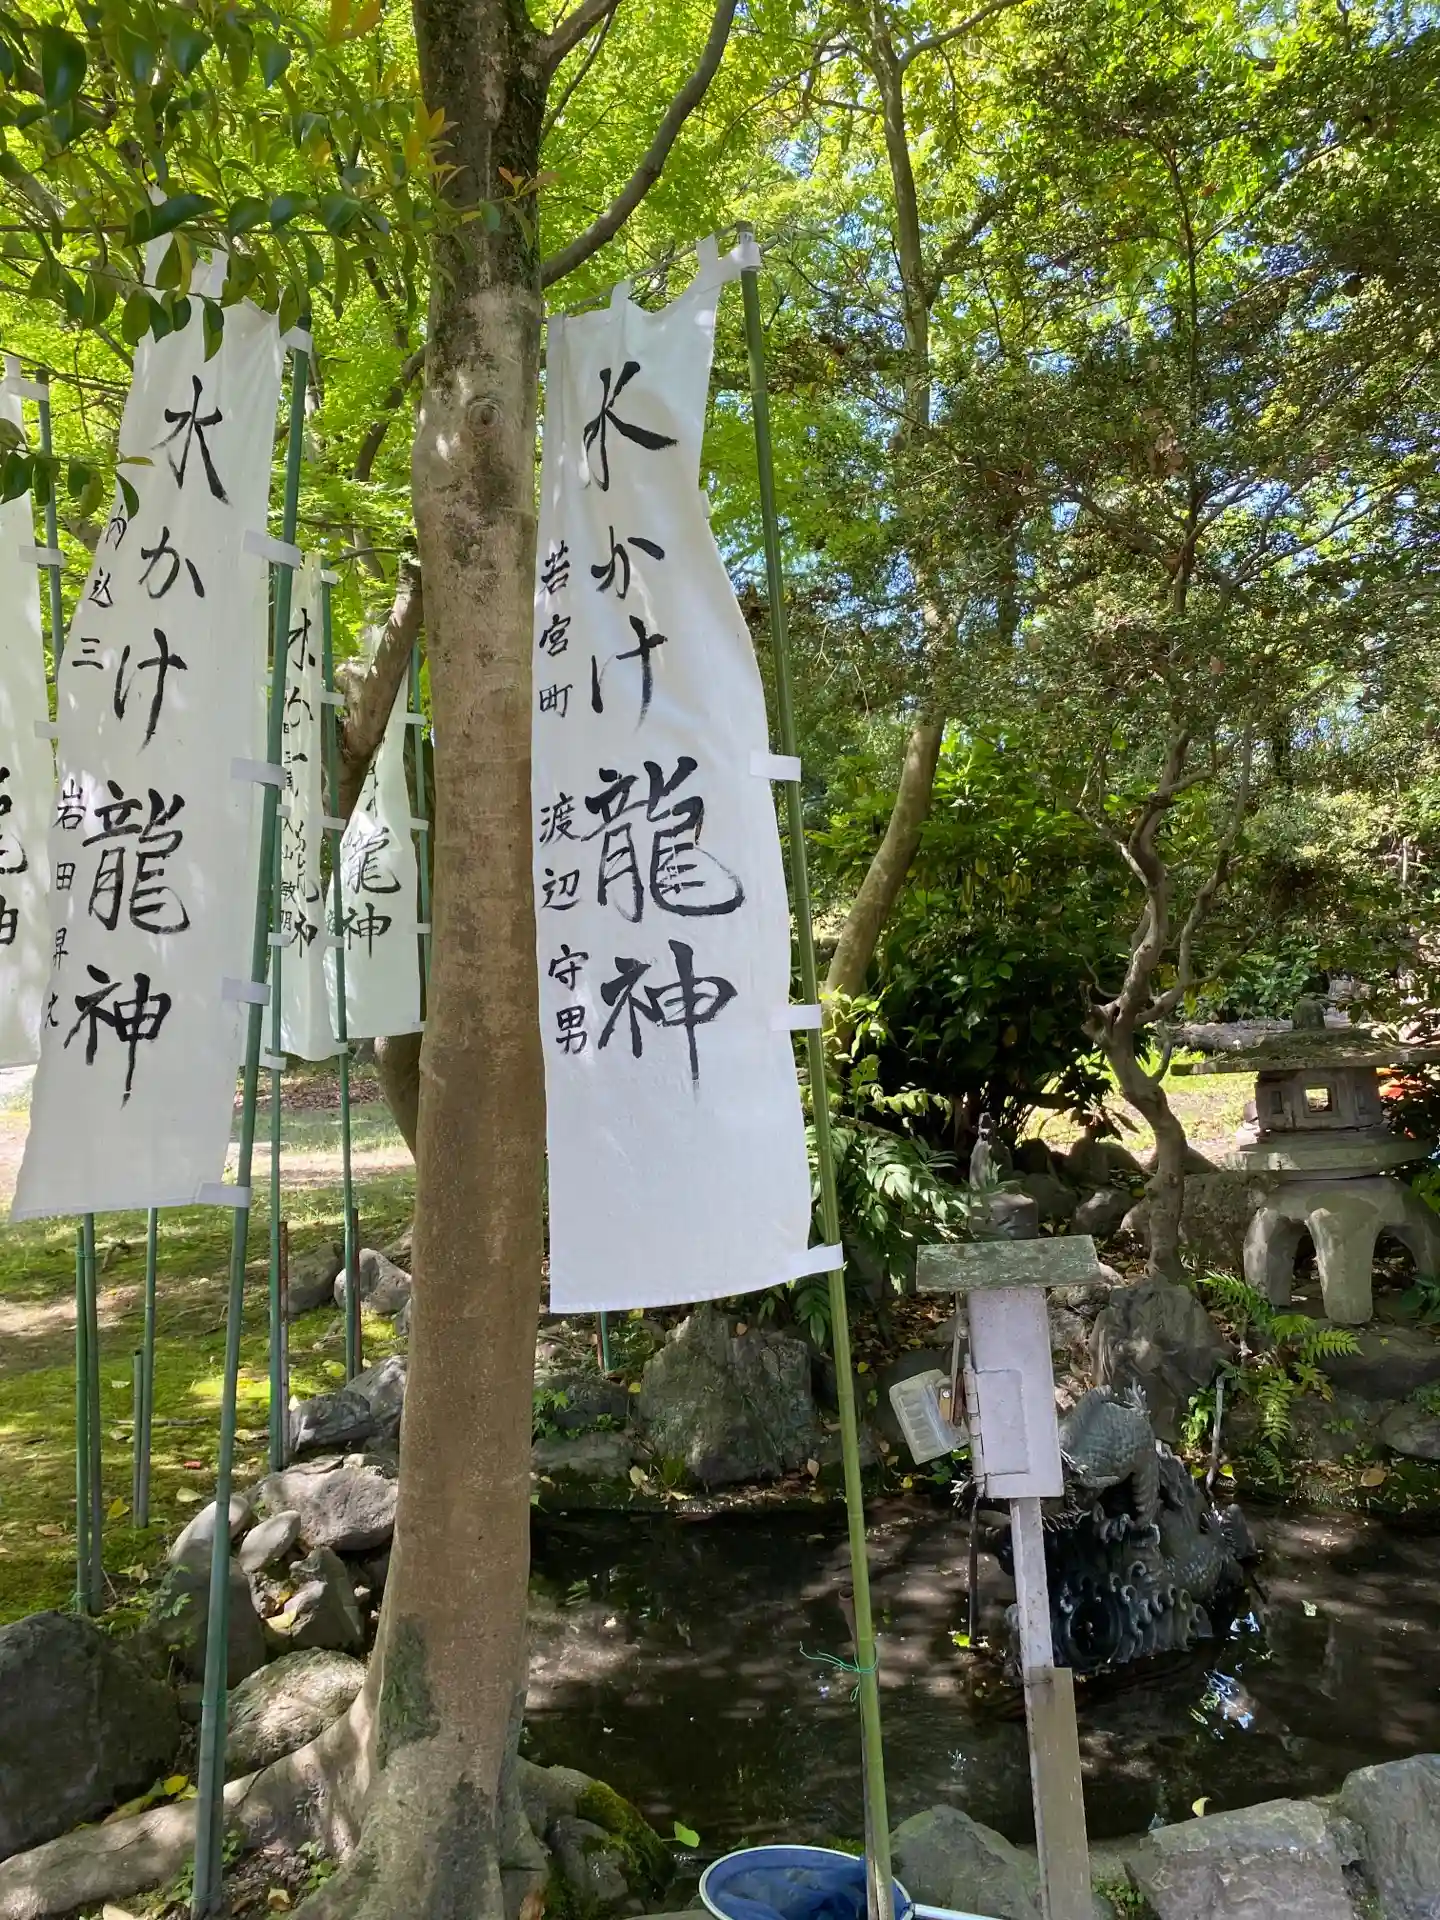 水かけ龍神
若宮町 渡辺守男
水かけ龍神
内込三 岩田昇
水かけ龍神
龍神
龍神